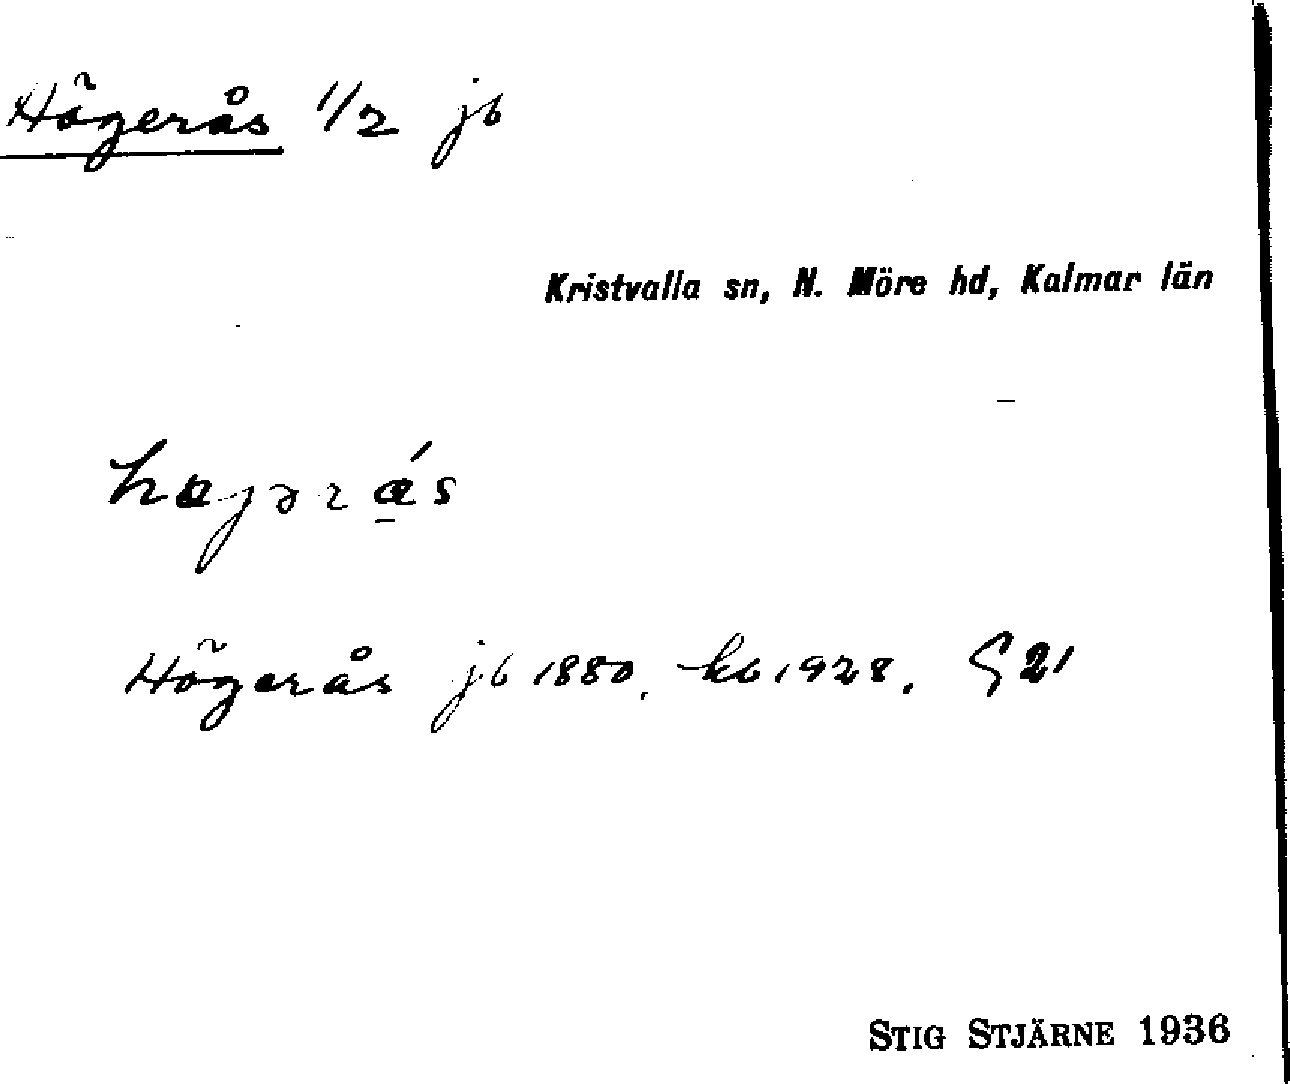 Högerås 1/2 jb
Kristvalla sn, N. Möre hd, Kalmar län
Högerås jb 1880, kb 1928. G 21
STIG STJÄRNE 1936